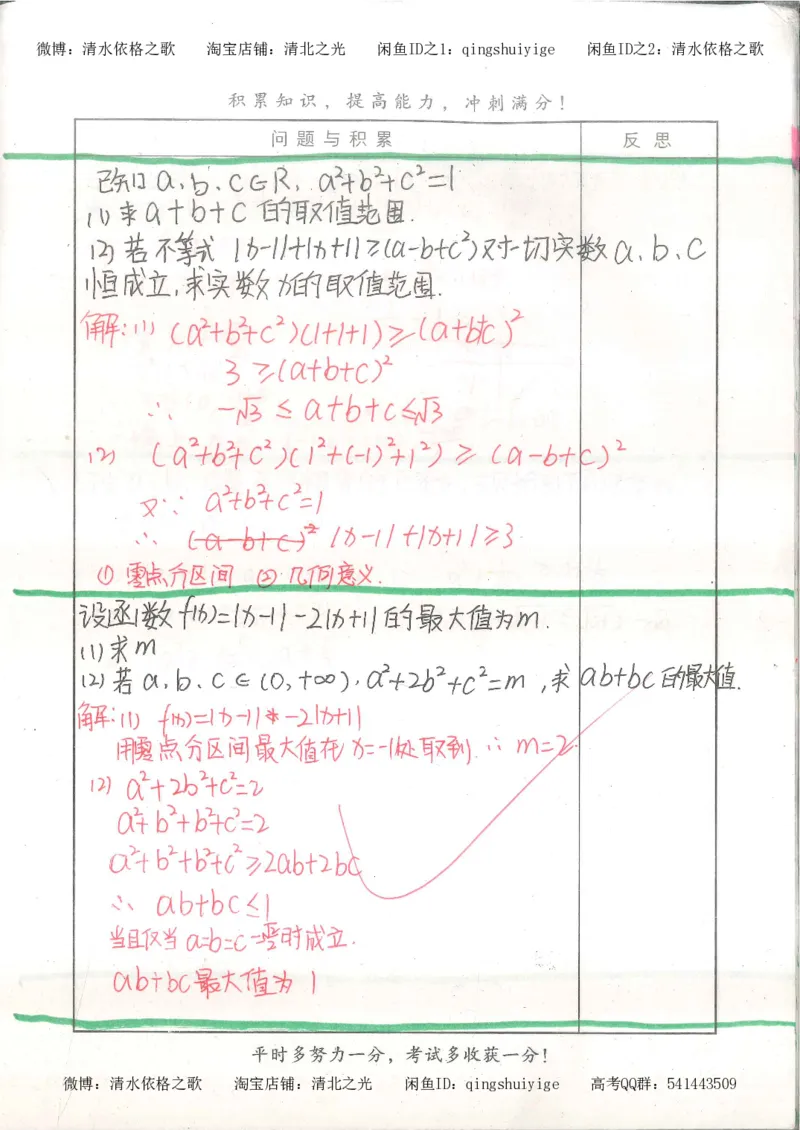 微博：清水依格之歌 淘宝店铺：清北之光 闲鱼ID之1：qingshuiyige 闲鱼ID之2：清水依格之歌
积累知识，提高能力，冲刺满分！
问题与积累 反思
已知a、b、c∈R, a²+b²+c²=1
(1) 求a+b+c的取值范围.
(2) 若不等式 |x-1|+|x+1|≥(a-b+c²)对一切实数a、b、c
恒成立,求实数x的取值范围.
解:(1) (a²+b²+c²)(1+1+1)≥(a+b+c)²
3≥(a+b+c)²
∴ -√3≤a+b+c≤√3
(2) (a²+b²+c²)(1²+(-1)²+1²)≥(a-b+c)²
又∵ a²+b²+c²=1
∴ (a-b+c)² |x-1|+|x+1|≥3
① 零点分区间 ② 几何意义.
设函数f(x)=|x-1|-2|x+1|的最大值为m.
(1) 求m
(2) 若a、b、c∈(0,+∞), a²+2b²+c²=m,求ab+bc的最大值.
解:(1) f(x)=|x-1|-2|x+1|
用零点分区间最大值在x=-1处取到.∴m=2
(2) a²+2b²+c²=2
a²+b²+b²+c²=2
a²+b²+b²+c²≥2ab+2bc
∴ ab+bc≤1
当且仅当a=b=c=时成立.
ab+bc最大值为1
平时多努力一分，考试多收获一分！
微博：清水依格之歌 淘宝店铺：清北之光 闲鱼ID：qingshuiyige 高考QQ群：541443509